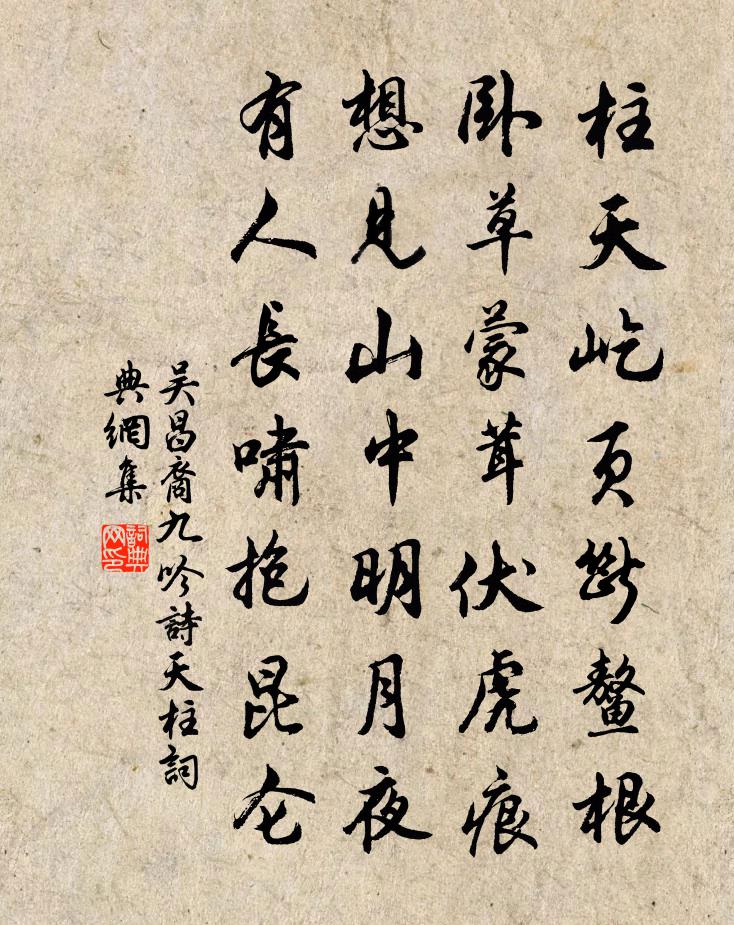 柱天屹頁斷鰲根
卧草蒙茸伏虎痕
想見山中明月夜
有人長嘯抱昆仑
吴昌裔九吟詩天柱詞
典網集
詞典
网印